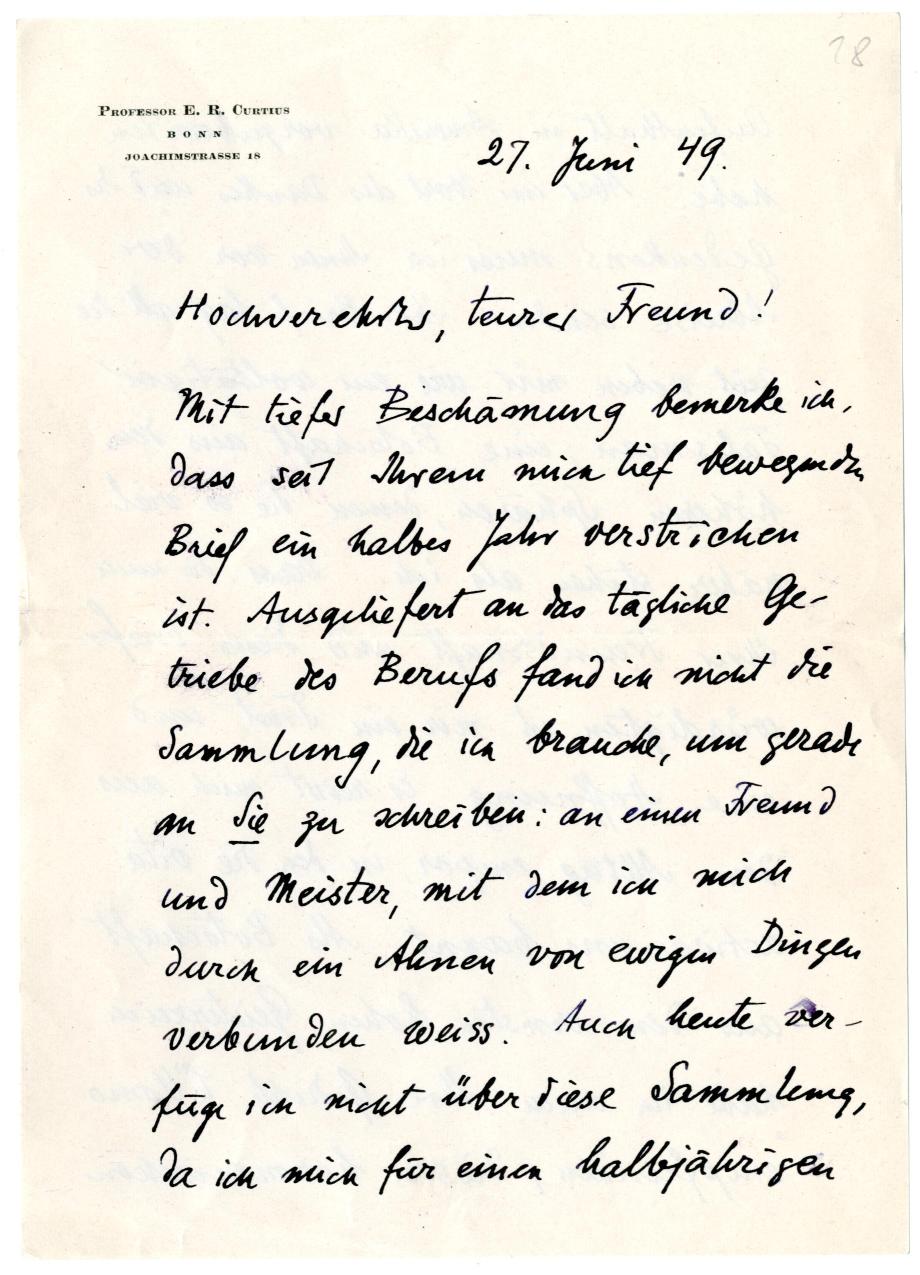 28
PROFESSOR E. R. CURTIUS
BONN
JOACHIMSTRASSE 18
27. Juni 49.
Hochverehrter, teurer Freund!
Mit tiefer Beschämung bemerke ich,
dass seit Ihrem mich tief bewegenden
Brief ein halbes Jahr verstrichen
ist. Ausgeliefert an das tägliche Ge-
triebe des Berufs fand ich nicht die
Sammlung, die ich brauche, um gerade
an Sie zu schreiben: an einen Freund
und Meister, mit dem ich mich
durch ein Ahnen von ewigen Dingen
verbunden weiss. Auch heute ver-
füge ich nicht über diese Sammlung,
da ich mich für einen halbjährigen